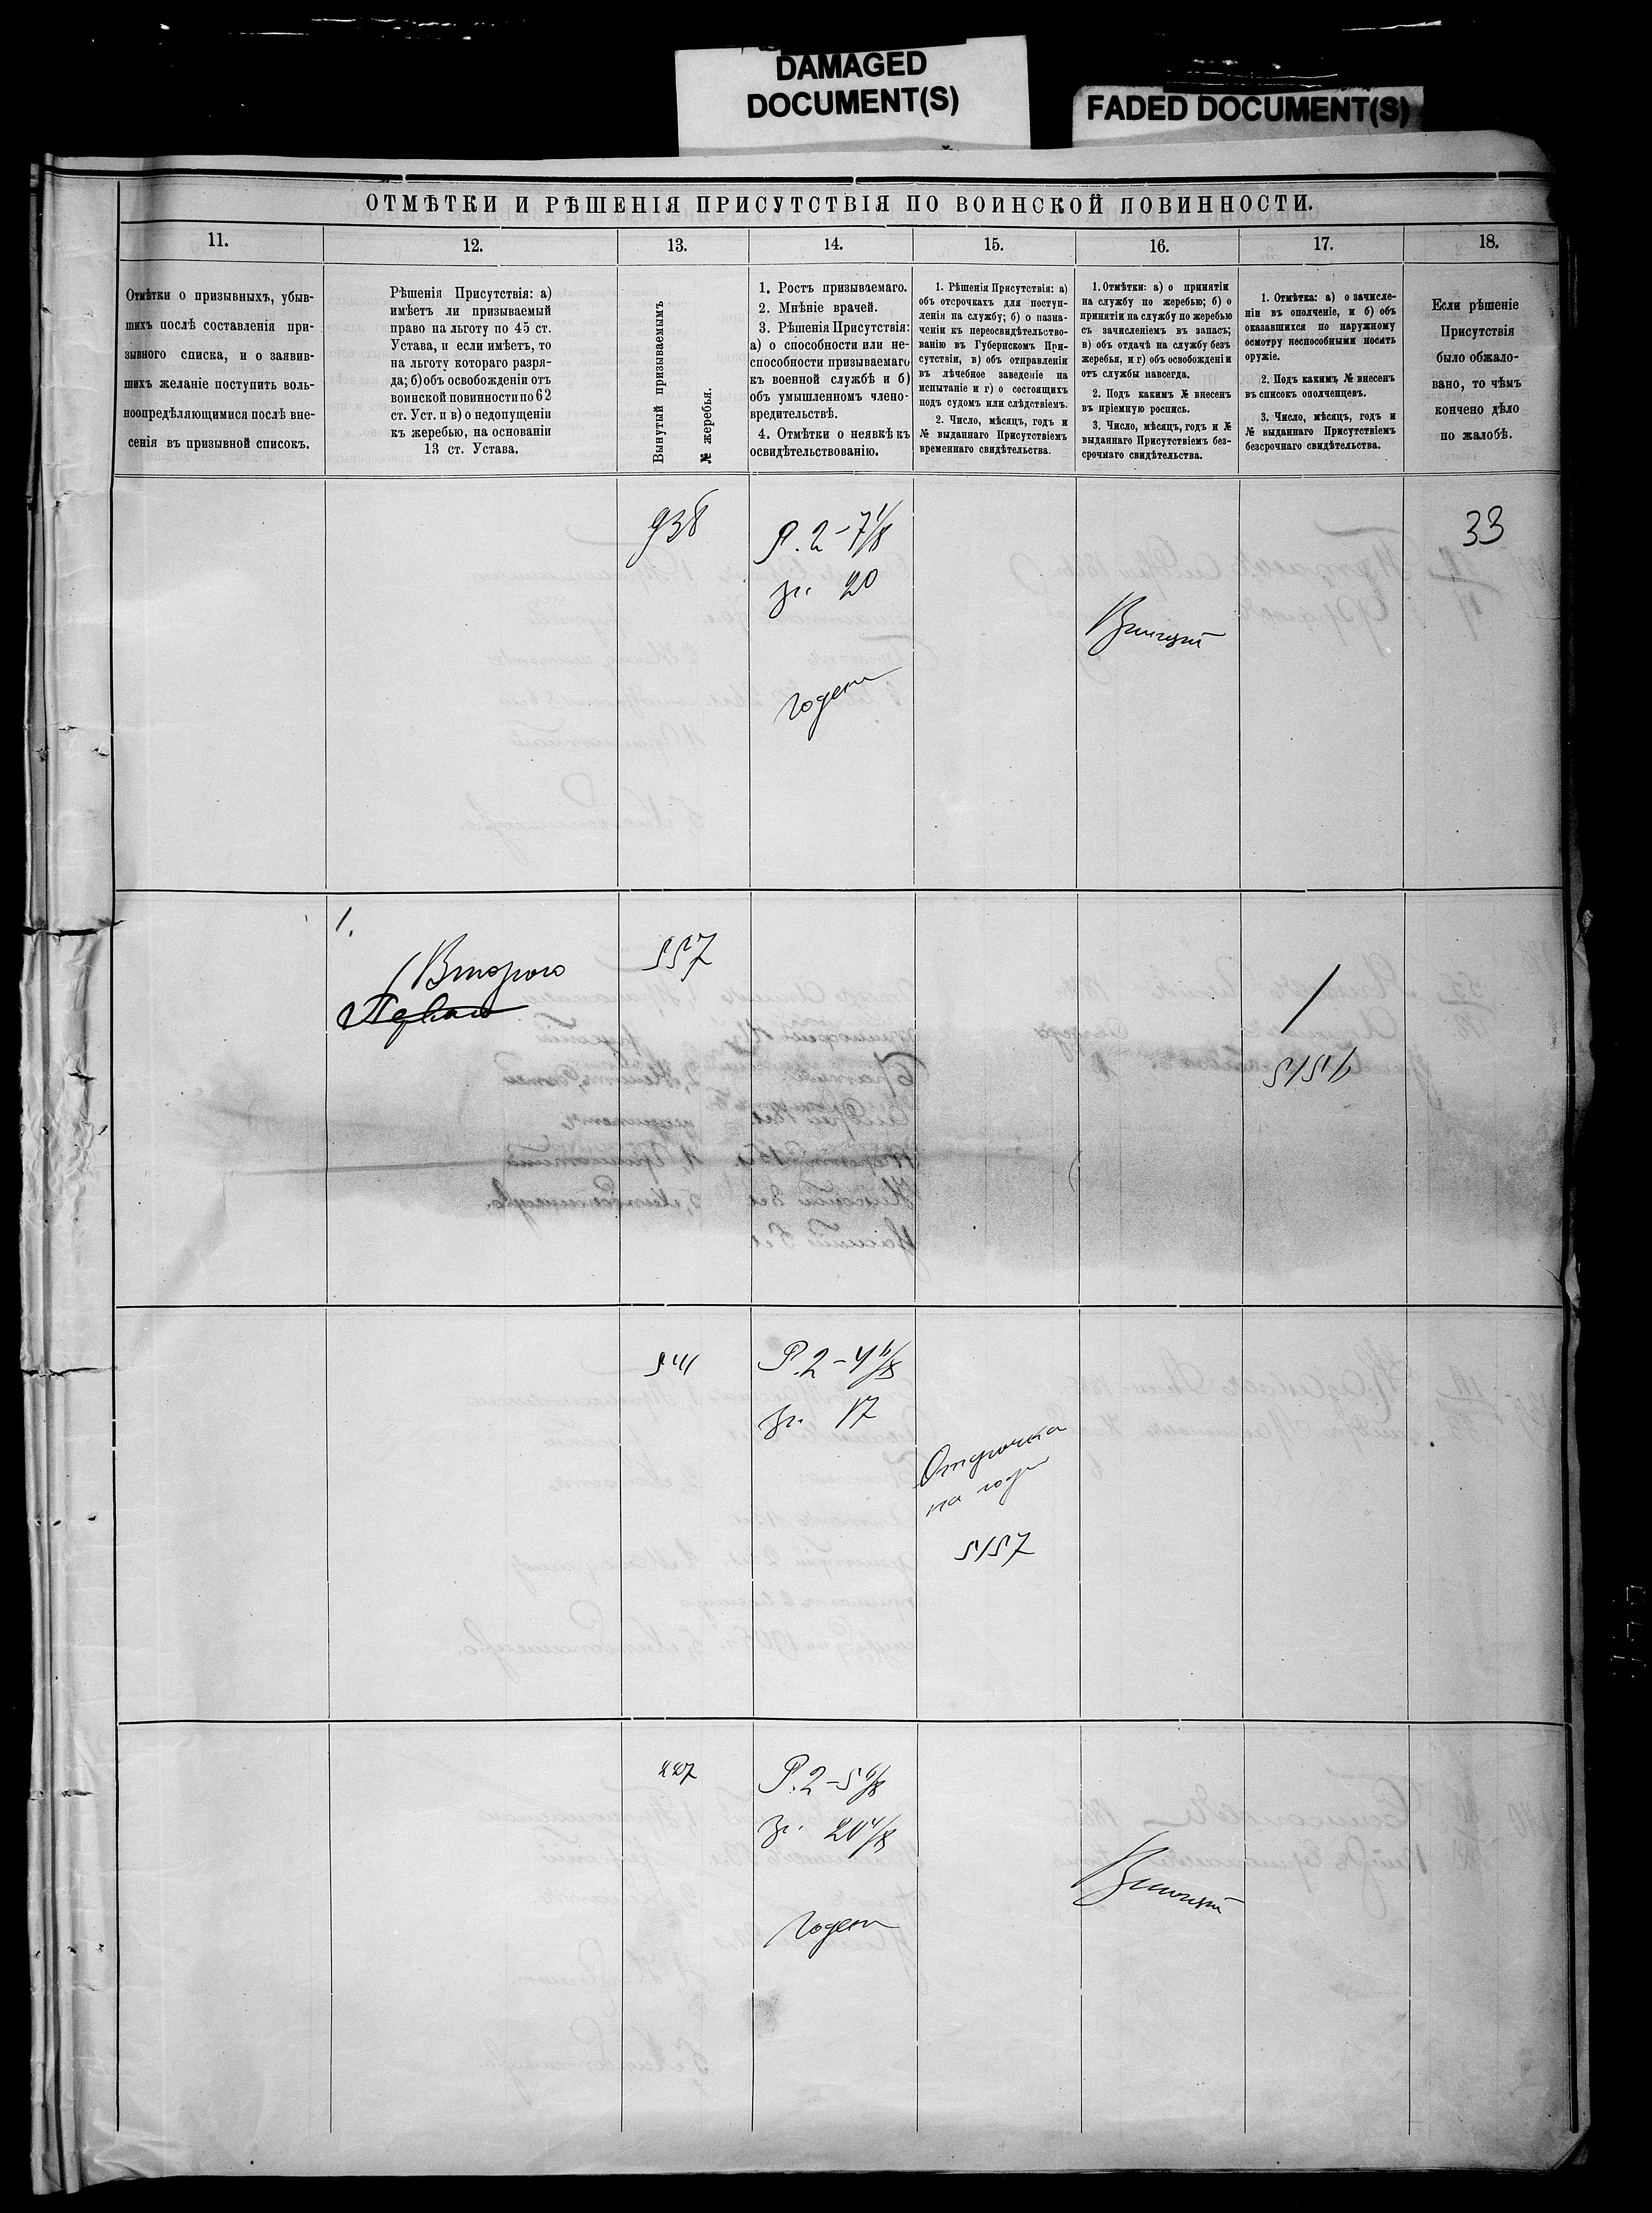 DAMAGED
DOCUMENT(S)
FADED DOCUMENT(S)
ОТМѢТКИ И РѢШЕНІЯ ПРИСУТСТВІЯ ПО ВОИНСКОЙ ПОВИННОСТИ.
11.
Отмѣтки о призывныхъ, убыв-
шихъ послѣ составленія при-
зывного списка, и о заявив-
шихъ желаніе поступить воль-
ноопредѣляющимися послѣ вне-
сенія въ призывной списокъ.
12.
Рѣшенія Присутствія: а)
имѣетъ ли призываемый
право на льготу по 45 ст.
Устава, и если имѣетъ, то
на льготу котораго разря-
да; б) объ освобожденіи отъ
воинской повинности по 62
ст. Уст. и в) о недопущеніи
къ жеребью, на основаніи
13 ст. Устава.
13.
Вынутый призываемымъ
№ жеребья.
14.
1. Ростъ призываемаго.
2. Мнѣніе врачей.
3. Рѣшенія Присутствія:
а) о способности или не-
способности призываемаго
къ военной службѣ и б)
объ умышленномъ члено-
вредительствѣ.
4. Отмѣтки о неявкѣ къ
освидѣтельствованію.
15.
1. Рѣшенія Присутствія: а)
объ отсрочкахъ для поступ-
ленія на службу; б) о назна-
ченіи къ переосвидѣтельство-
ванію въ Губернскомъ При-
сутствіи, в) объ отправленіи
въ лѣчебное заведеніе на
испытаніе и г) о состоящихъ
подъ судомъ или слѣдствіемъ.
2. Число, мѣсяцъ, годъ и
№ выданнаго Присутствіемъ
временнаго свидѣтельства.
16.
1. Отмѣтки: а) о принятіи
на службу по жеребью; б) о
принятіи на службу по жеребью
съ зачисленіемъ въ запасъ;
в) объ отдачѣ на службу безъ
жеребья, и г) объ освобожденіи
отъ службы навсегда.
2. Подъ какимъ № внесенъ
въ пріемную роспись.
3. Число, мѣсяцъ, годъ и №
выданнаго Присутствіемъ без-
срочнаго свидѣтельства.
17.
1. Отмѣтка: а) о зачисле-
ніи въ ополченіе, и б) объ
оказавшихся по наружному
осмотру неспособными носить
оружіе.
2. Подъ какимъ № внесенъ
въ списокъ ополченцевъ.
3. Число, мѣсяцъ, годъ и
№ выданнаго Присутствіемъ
безсрочнаго свидѣтельства.
18.
Если рѣшеніе
Присутствія
было обжало-
вано, то чѣмъ
кончено дѣло
по жалобѣ.
938
Р. 2-7 1/8
зг. 20
Годенъ
33
1.
Второго
Перваго
557
5156
541
Р. 2-4 6/8
зг. 17
Отсрочка
на годъ
5157
227
Р. 2-5 6/8
зг. 20 4/8
Годенъ